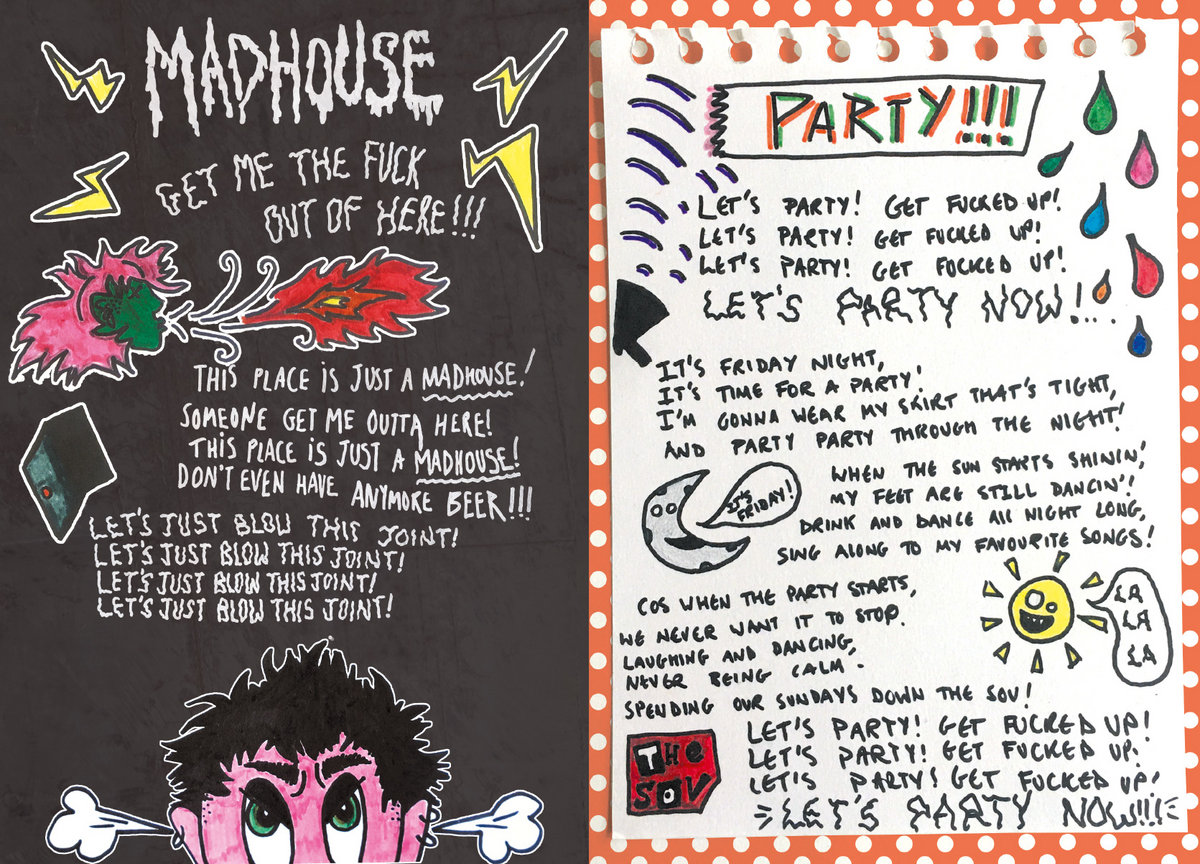 MADHOUSE
GET ME THE FUCK
OUT OF HERE!!!
THIS PLACE IS JUST A MADHOUSE!
SOMEONE GET ME OUTTA HERE!
THIS PLACE IS JUST A MADHOUSE!
DON'T EVEN HAVE ANYMORE BEER!!!
LET'S JUST BLOW THIS JOINT!
LET'S JUST BLOW THIS JOINT!
LET'S JUST BLOW THIS JOINT!
LET'S JUST BLOW THIS JOINT!
PARTY!!!
LET'S PARTY! GET FUCKED UP!
LET'S PARTY! GET FUCKED UP!
LET'S PARTY! GET FUCKED UP!
LET'S PARTY NOW!...
IT'S FRIDAY NIGHT,
IT'S TIME FOR A PARTY!
I'M GONNA WEAR MY SKIRT THAT'S TIGHT,
AND PARTY PARTY THROUGH THE NIGHT!
IT'S
FRIDAY!
WHEN THE SUN STARTS SHININ',
MY FEET ARE STILL DANCIN'!
DRINK AND DANCE ALL NIGHT LONG,
SING ALONG TO MY FAVOURITE SONGS!
COS WHEN THE PARTY STARTS,
WE NEVER WANT IT TO STOP.
LAUGHING AND DANCING,
NEVER BEING CALM.
SPENDING OUR SUNDAYS DOWN THE SOV!
LA
LA
LA
THE
SOV
LET'S PARTY! GET FUCKED UP!
LET'S PARTY! GET FUCKED UP!
LET'S PARTY! GET FUCKED UP!
LET'S PARTY NOW!!!